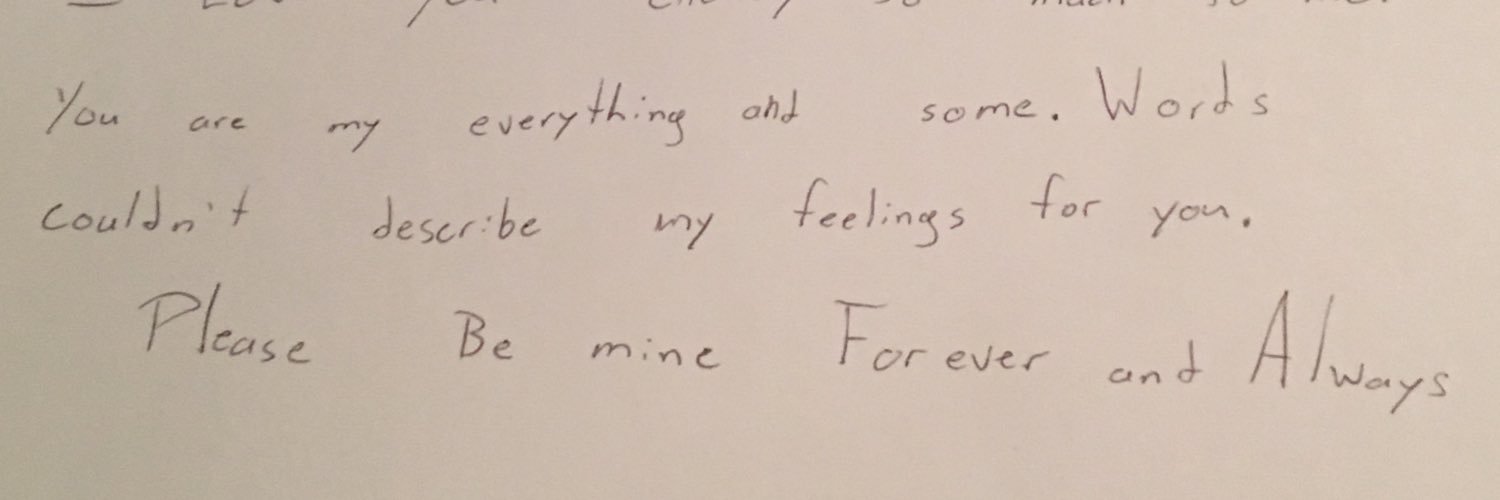 You are my everything and some. Words
couldn't describe my feelings for you.
Please Be mine Forever and Always